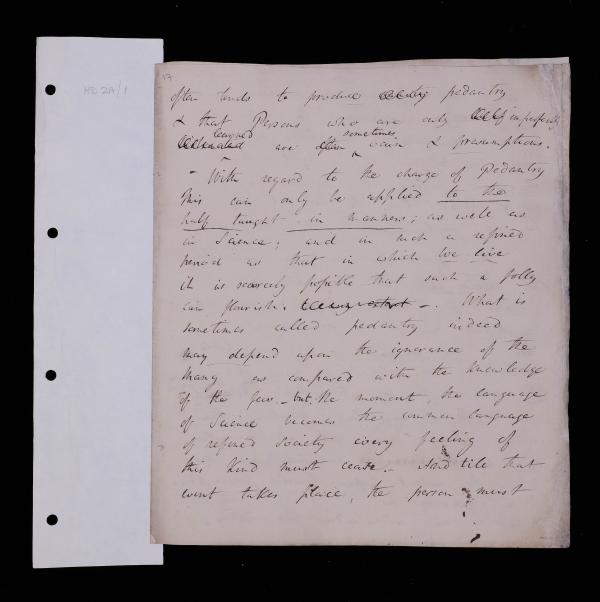 HD 2A/1
17
often tends to produce pedantry
& that Persons who are only imperfectly
learned sometimes
are often vain & presumptuous.
- With regard to the charge of Pedantry
this can only be applied to the
half taught in manners; as well as
in Science; and in such a refined
period as that in which we live
it is scarcely possible that such a folly
can flourish. What is
sometimes called pedantry indeed
may depend upon the ignorance of the
Many as compared with the knowledge
of the few. - but the moment the language
of Science becomes the common language
of refined Society every feeling of
this kind must cease. - And till that
event takes place, the person must